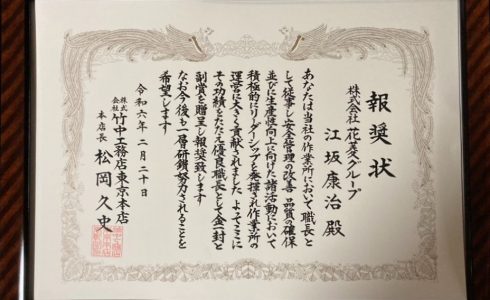 報奨状
株式会社 花菱グループ
江坂康治 殿
あなたは当社の作業所において 職長と
して従事し 安全管理の改善 品質の確保
並びに生産性向上に向けた諸活動において
積極的にリーダーシップを発揮され作業所の
運営に大きく貢献されました よってここに
その功績をたたえ優良職長として金一封と
副賞を贈呈し報奨致します
なお今後も一層研鑽努力されることを
希望します
令和六年二月二十日
株式会社 竹中工務店東京本店
本店長 松岡久史